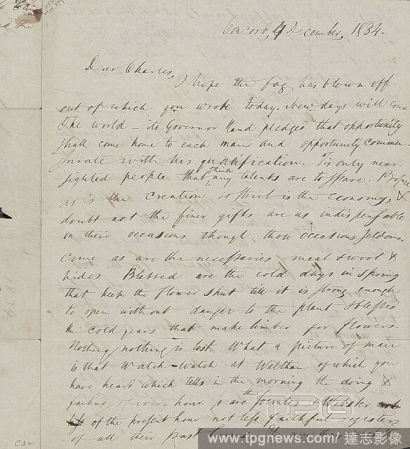 Concord, 9 December, 1834.
Dear Charles,
I hope the fog has blown off
out of which you wrote today. New days will come
The world — its Governor Hand pledges that opportunity
shall come to each man and opportunity commen-
surate with his qualification. Tis only near
sighted people that think any talents are to spare.
as is the creation strict is the economy &
doubt not the finer gifts are as indispensable
on their occasions though those occasions seldomer
come as are the necessaries meal wood &
hides. Blessed are the cold days in spring
that keep the flower shut till it is strong enough
to open without danger to the plant. Blessed
the cold years that make timber for flowers.
Nothing nothing is lost. What a picture of man
is that Watch-watch at Waltham of which you
have heard which tells in the morning the doing &
failing hour
of the present hour not less faithful registers
of all their past
C32
www.tpgnews.com / 達志影像